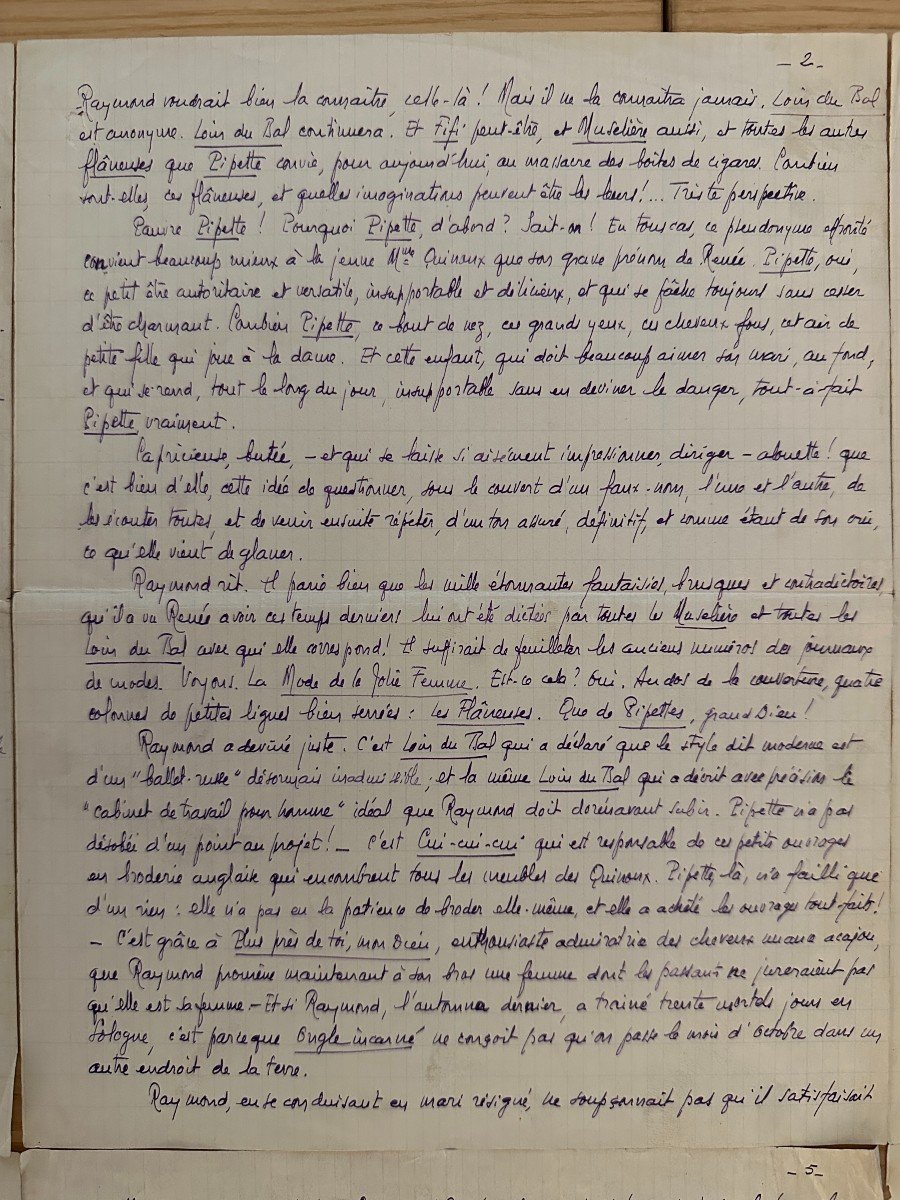 - 2 -
Raymond voudrait bien la connaître, celle-là ! Mais il ne la connaîtra jamais. Loin du Bal
est anonyme. Loin du Bal continuera. Et Fifi peut-être, et Muselière aussi, et toutes les autres
flâneuses que Pipette convie, pour aujourd'hui, au massacre des boîtes de cigares. Combien
sont-elles, ces flâneuses, et quelles imaginations peuvent être les leurs !... Triste perspective.
Pauvre Pipette ! Pourquoi Pipette, d'abord ? Sait-on ! En tous cas, ce pseudonyme effronté
convient beaucoup mieux à la jeune Mme Quinoux que son grave prénom de Renée. Pipette, oui,
ce petit être autoritaire et versatile, insupportable et délicieux, et qui se fâche toujours sans cesser
d'être charmant. Combien Pipette, ce bout de nez, ces grands yeux, ces cheveux fous, cet air de
petite fille qui joue à la dame. Et cette enfant, qui doit beaucoup aimer son mari, au fond,
et qui se rend, tout le long du jour, insupportable sans en deviner le danger, tout-à-fait
Pipette, vraiment.
Capricieuse, butée, - et qui se laisse si aisément impressionner, diriger - alouette ! que
c'est bien d'elle, cette idée de questionner, sous le couvert d'un faux-nom, l'une et l'autre, de
les écouter toutes, et de venir ensuite répéter, d'un ton assuré, définitif, et comme étant de son cru,
ce qu'elle vient de glaner.
Raymond rit. Il parie bien que les mille étonnantes fantaisies, brusques et contradictoires,
qu'il a vu Renée avoir ces temps derniers lui ont été dictées par toutes les Muselière et toutes les
Loin du Bal avec qui elle correspond ! Il suffirait de feuilleter les anciens numéros des journaux
de modes. Voyons. La Mode de la Jolie Femme. Est-ce cela ? Oui. Au dos de la couverture, quatre
colonnes de petites lignes bien serrées : Les Flâneuses. Que de Pipettes, grand Dieu !
Raymond a deviné juste. C'est Loin du Bal qui a déclaré que le style dit moderne est
d'un "ballet-russe" désormais inadmissible ; et la même Loin du Bal qui a décrit avec précision le
"cabinet de travail pour homme" idéal que Raymond doit dorénavant subir. Pipette n'a pas
désobéi d'un point au projet ! - C'est Cui-cui-cui qui est responsable de ces petits ouvrages
en broderie anglaise qui encombrent tous les meubles des Quinoux. Pipette, là, n'a failli que
d'un rien : elle n'a pas eu la patience de broder elle-même, et elle a acheté les ouvrages tout-faits !
- C'est grâce à Plus près de toi, mon Dieu, enthousiaste admiratrice des cheveux nuance acajou,
que Raymond promène maintenant à son bras une femme dont les passants ne jureraient pas
qu'elle est sa femme - Et si Raymond, l'automne dernier, a traîné trente mortels jours en
Sologne, c'est parce que Ongle incarné ne conçoit pas qu'on passe le mois d'Octobre dans un
autre endroit de la terre.
Raymond, en se conduisant en mari résigné, ne soupçonnait pas qu'il satisfaisait
- 5 -